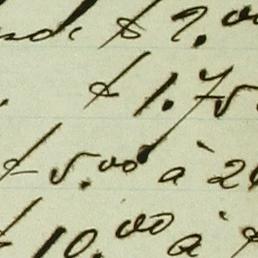 $ 2.00
$ 1.75
$ 5.00 à 2
$ 10.00 à $